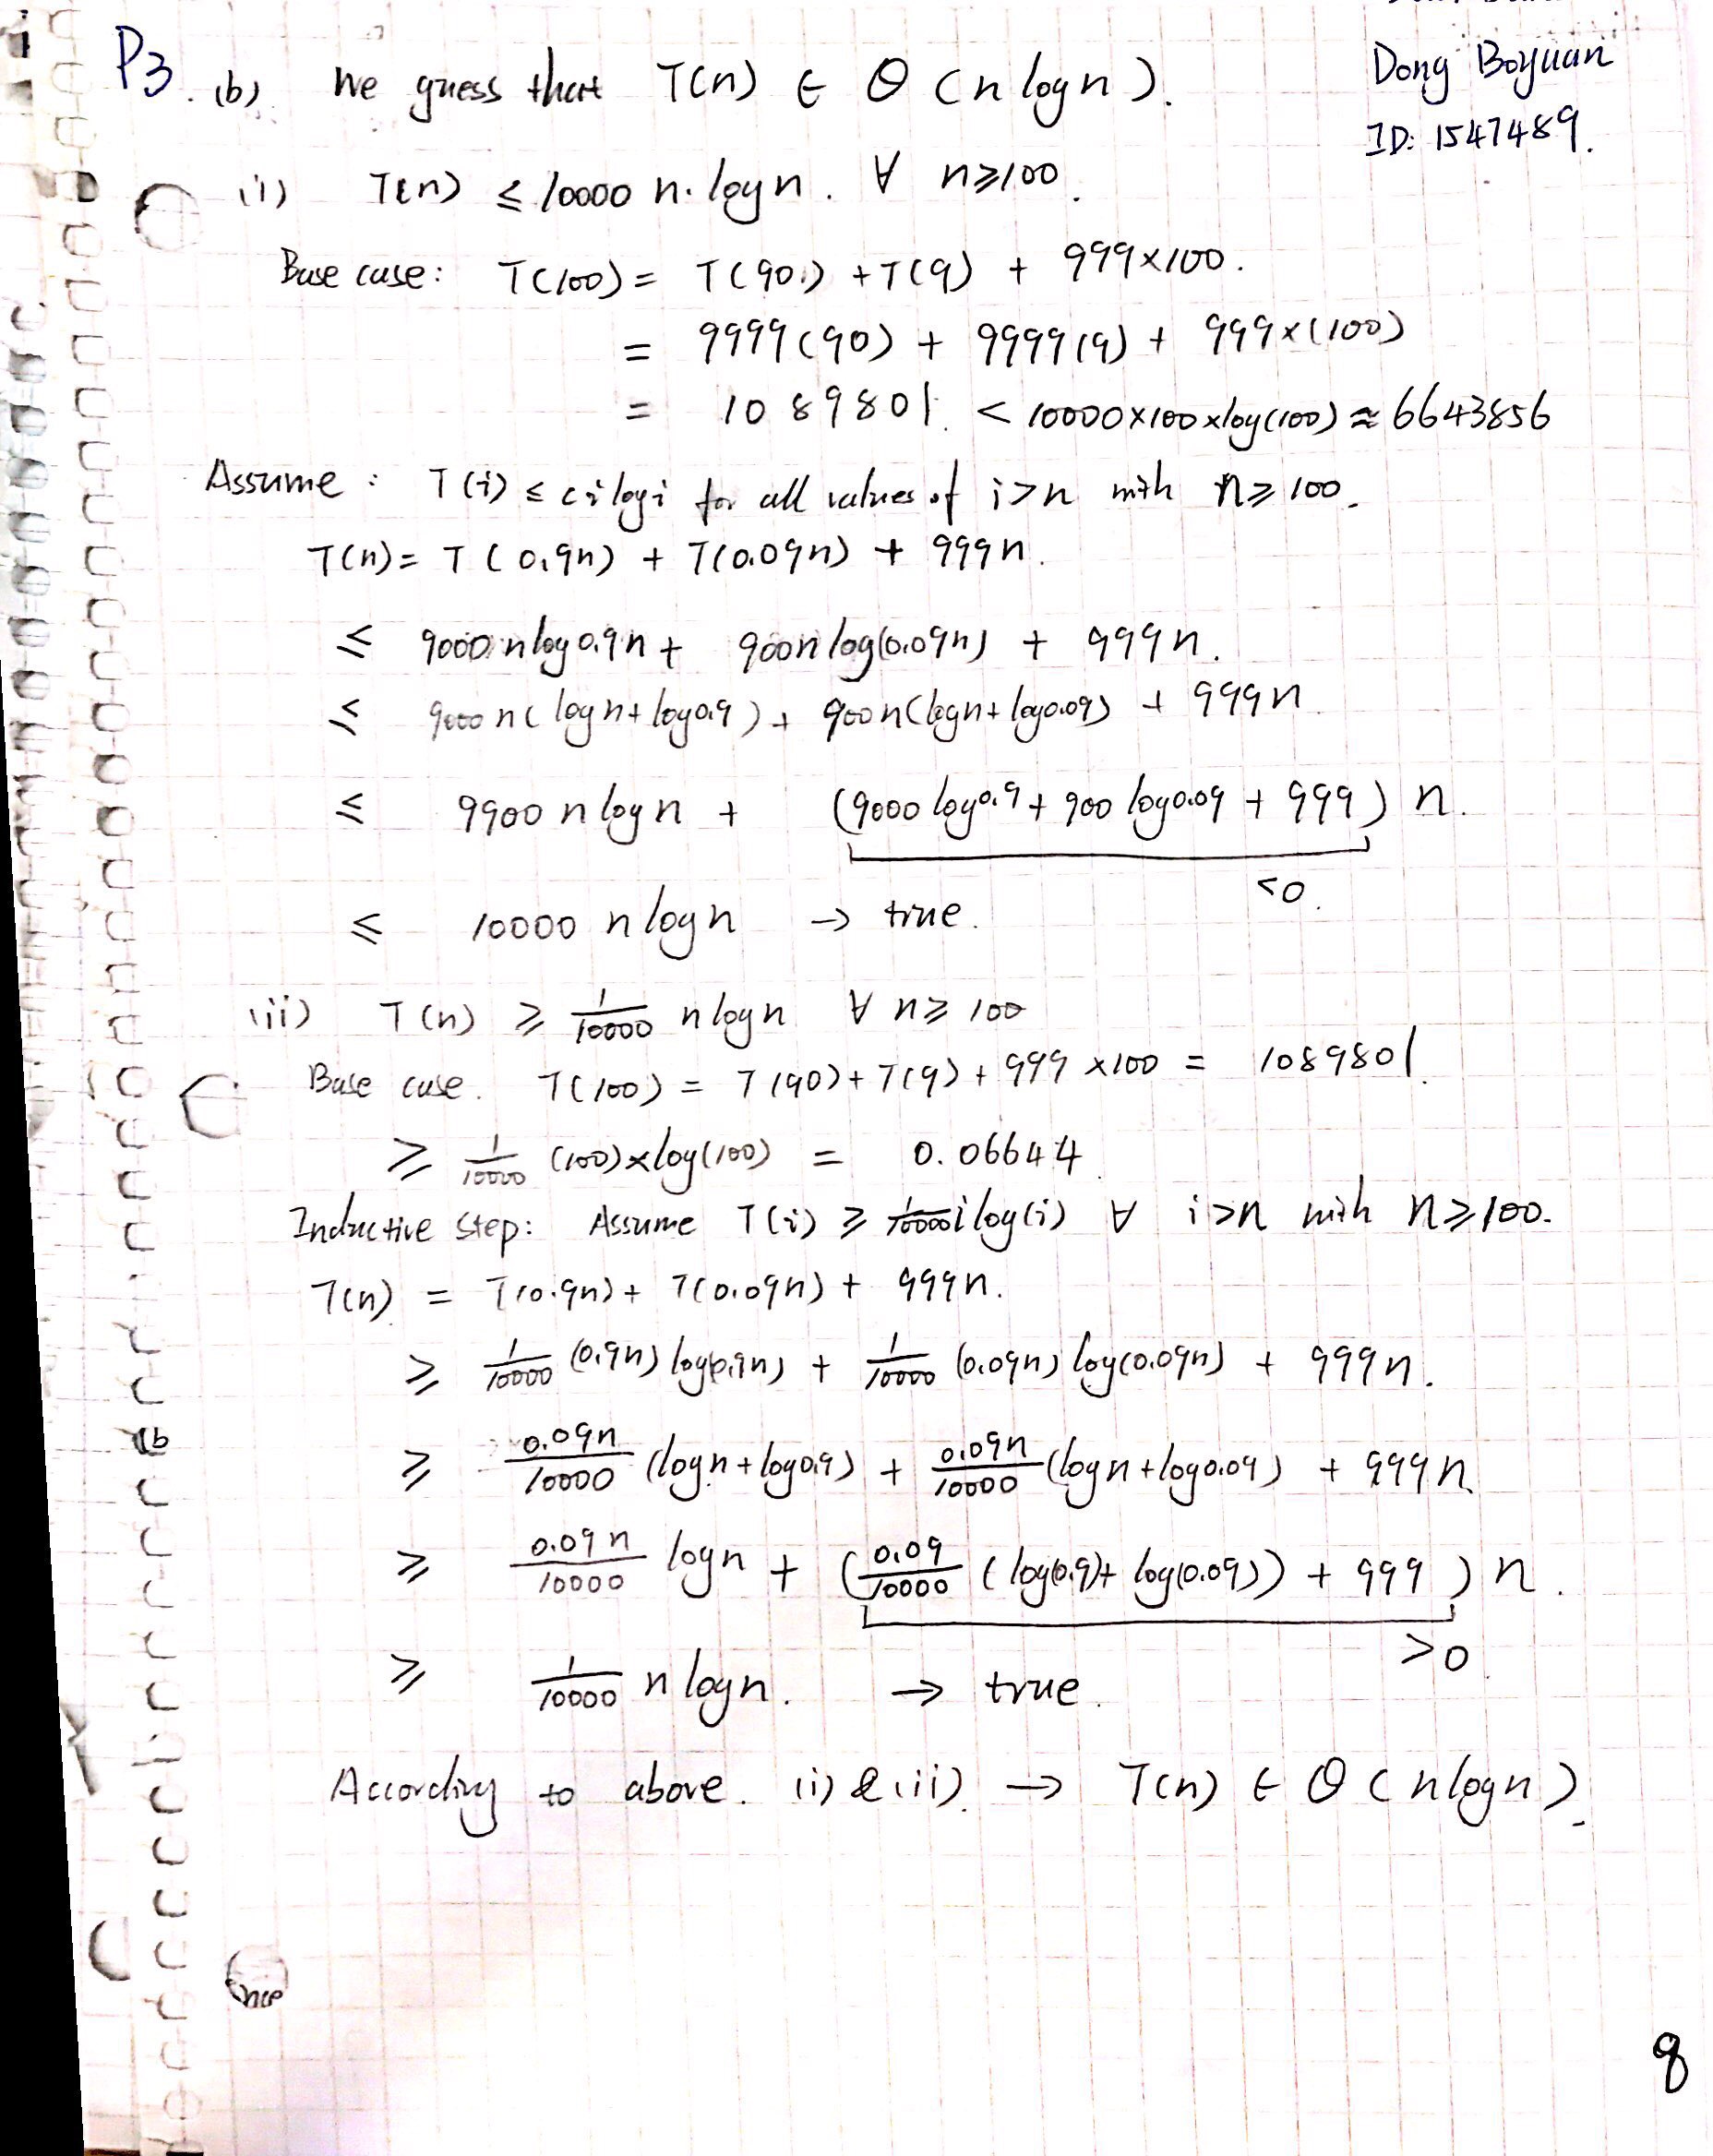 P3. (b) We guess that T(n) ∈ Θ(n log n).
Dong Boyuan
ID: 1547489.
(i) T(n) ≤ 10000 n·log n. ∀ n≥100.
Base case: T(100) = T(90) + T(9) + 999×100.
= 9999(90) + 9999(9) + 999×(100)
= 1089801. < 10000×100×log(100) ≈ 6643856
Assume: T(i) ≤ c i log i for all values of i>n with n≥100.
T(n) = T(0.9n) + T(0.09n) + 999n.
≤ 9000 n log 0.9n + 900n log(0.09n) + 999n.
≤ 9000 n( log n + log 0.9 ) + 900n(log n + log 0.09) + 999n
≤ 9900 n log n + (9000 log 0.9 + 900 log 0.09 + 999) n.
<0.
≤ 10000 n log n → true.
(ii) T(n) ≥ 1/10000 n log n ∀ n≥100
Base case. T(100) = T(90) + T(9) + 999×100 = 1089801.
≥ 1/10000 (100)×log(100) = 0.06644
Inductive Step: Assume T(i) ≥ 1/10000 i log(i) ∀ i>n with n≥100.
T(n) = T(0.9n) + T(0.09n) + 999n.
≥ 1/10000 (0.9n) log(0.9n) + 1/10000 (0.09n) log(0.09n) + 999n.
≥ 0.09n/10000 (log n + log 0.9) + 0.09n/10000 (log n + log 0.09) + 999n
≥ 0.09n/10000 log n + (0.09/10000 ( log(0.9) + log(0.09)) + 999 ) n.
>0
≥ 1/10000 n log n. → true.
According to above. (i) & (ii). → T(n) ∈ Θ(n log n).
8